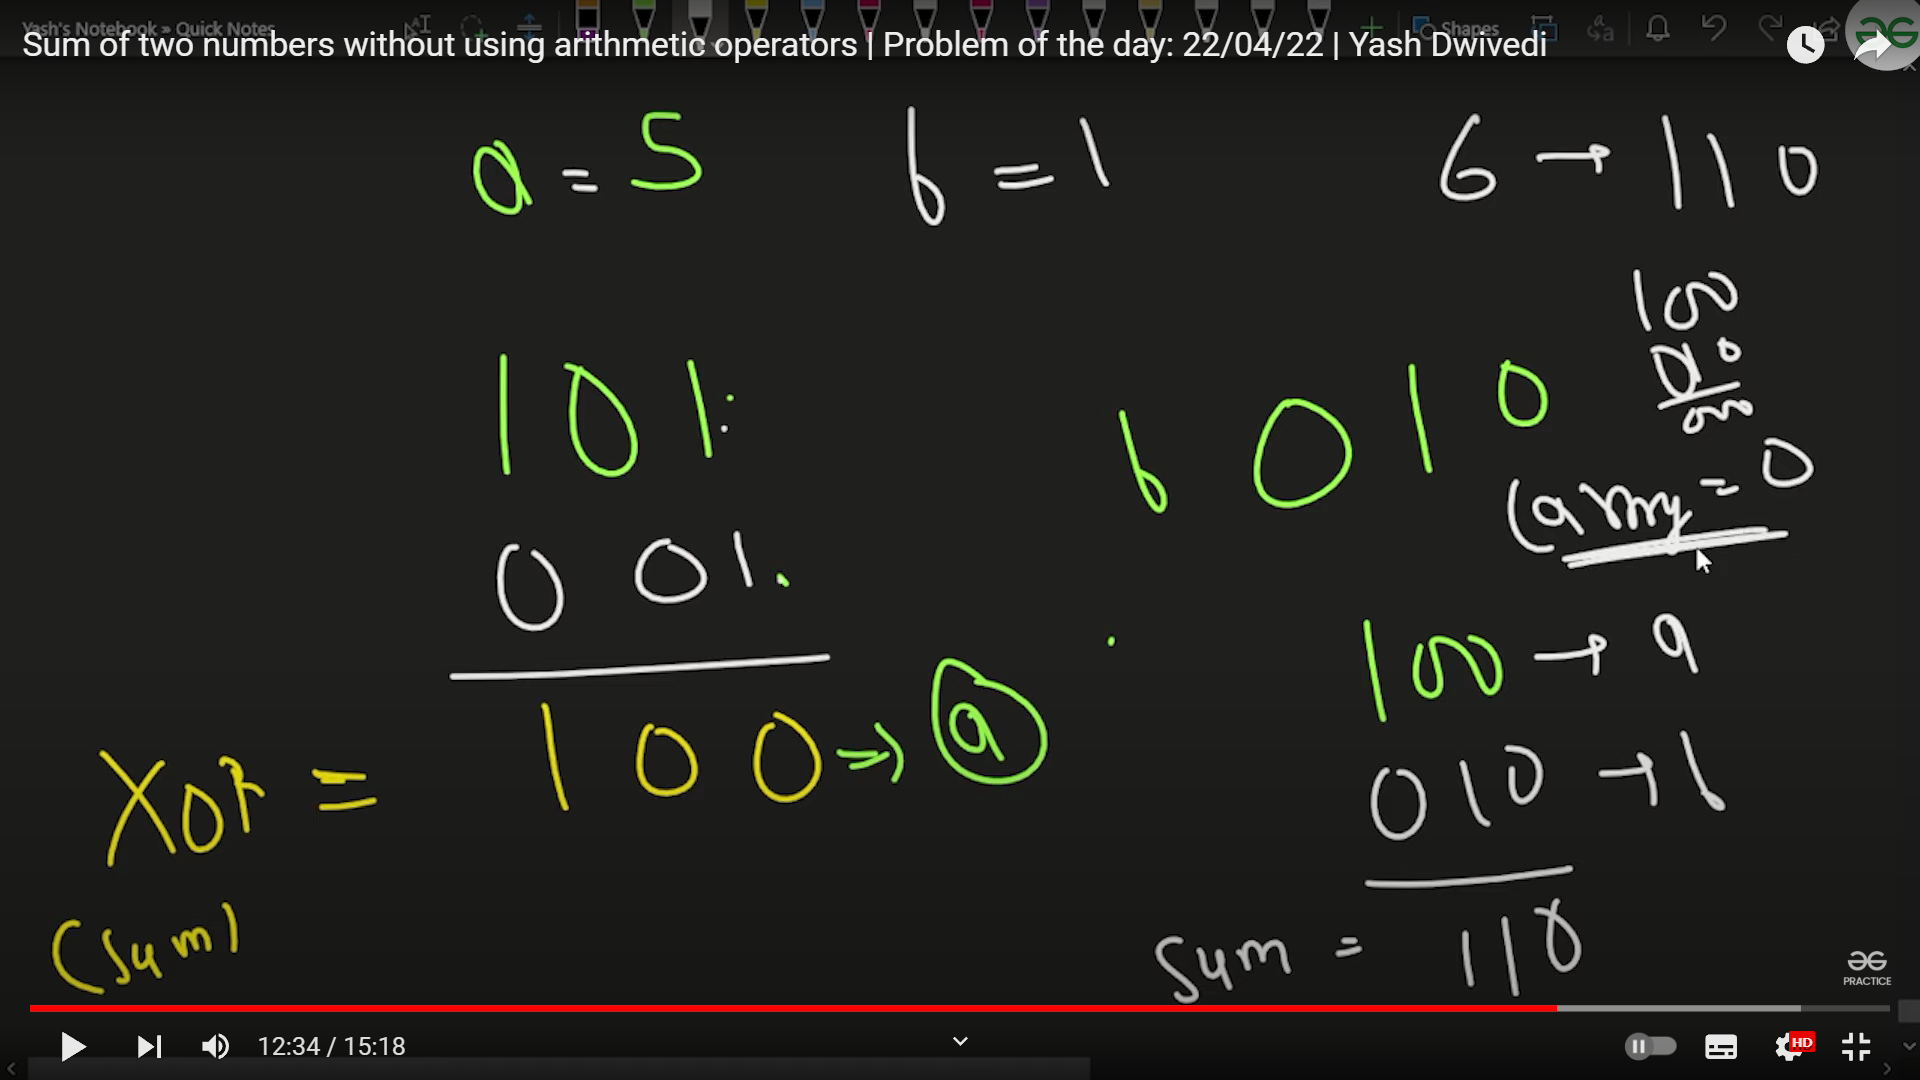 Yash's Notebook » Quick Notes
Shapes
Sum of two numbers without using arithmetic operators | Problem of the day: 22/04/22 | Yash Dwivedi
a = 5 b = 1 6 → 110
100
010
000
101
b 010
carry = 0
001
100 → a
XOR = 100 ⇒ a
010 → b
(Sum)
Sum = 110
PRACTICE
12:34 / 15:18
HD